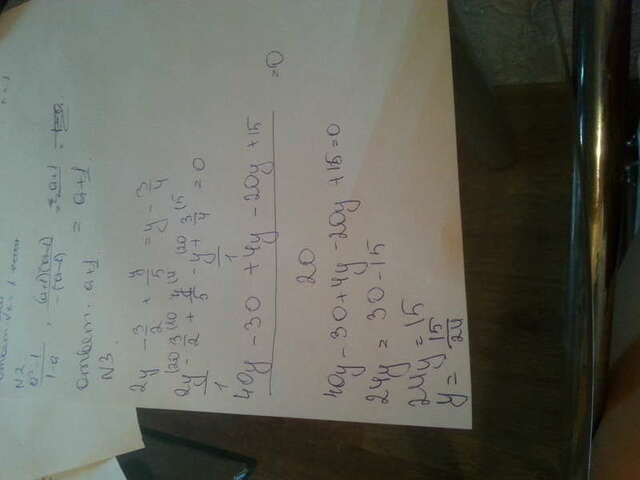 N2
a²-1/1-a = (a+1)(a-1)/-(a-1) = a+1
ответ: a+1 = a+1
N3
2y - 3/2 + y/5 = y - 3/4
2y/1 (20 - 3/2 (10 + y/5 (4 - y/1 (20 + 3/4 (5 = 0
40y - 30 + 4y - 20y + 15 / 20 = 0
40y - 30 + 4y - 20y + 15 = 0
24y = 30 - 15
24y = 15
y = 15/24